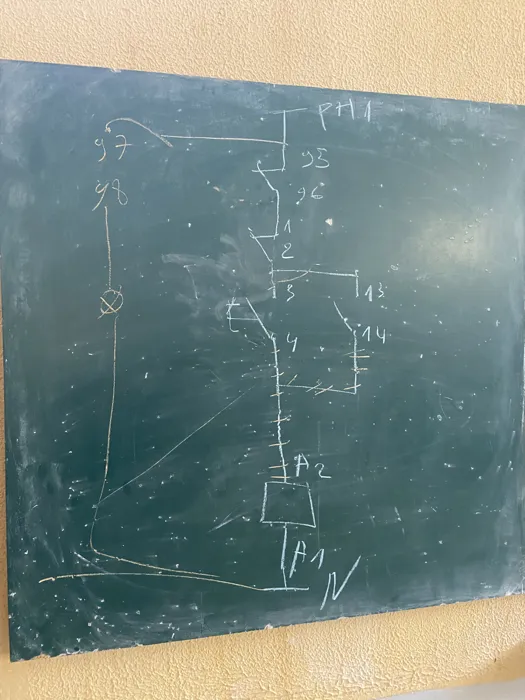 PH1
97
95
98
96
1
2
3
13
4
14
A2
A1
N